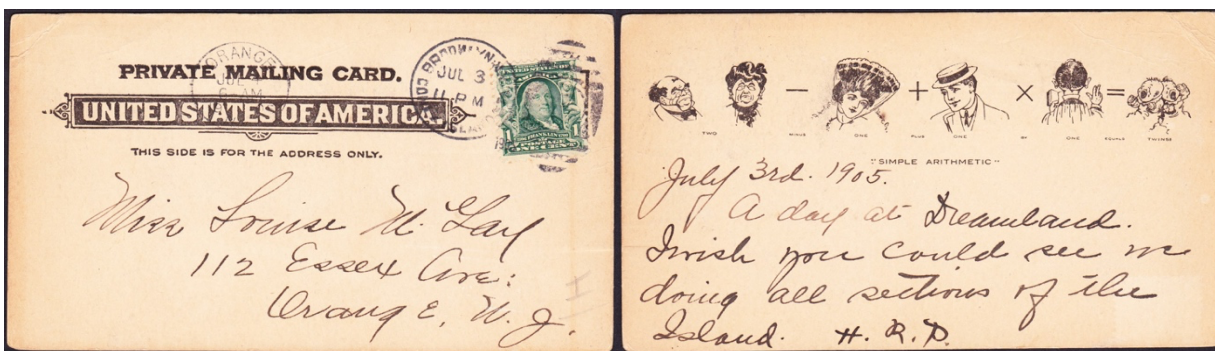 ORANGE
JUL
6 AM
PRIVATE MAILING CARD.
UNITED STATES OF AMERICA.
THIS SIDE IS FOR THE ADDRESS ONLY.
JUL 3
11 PM
UNITED STATES OF
AMERICA
FRANKLIN
1 POSTAGE 1
ONE CENT
Miss Louise M.
112 Essex Ave:
Orange, N. J.
− + × =
TWO MINUS ONE PLUS ONE BY ONE EQUALS TWINS
"SIMPLE ARITHMETIC"
July 3rd. 1905.
A day at Dreamland.
I wish you could see me
doing all sections of the
Island. H. R. D.